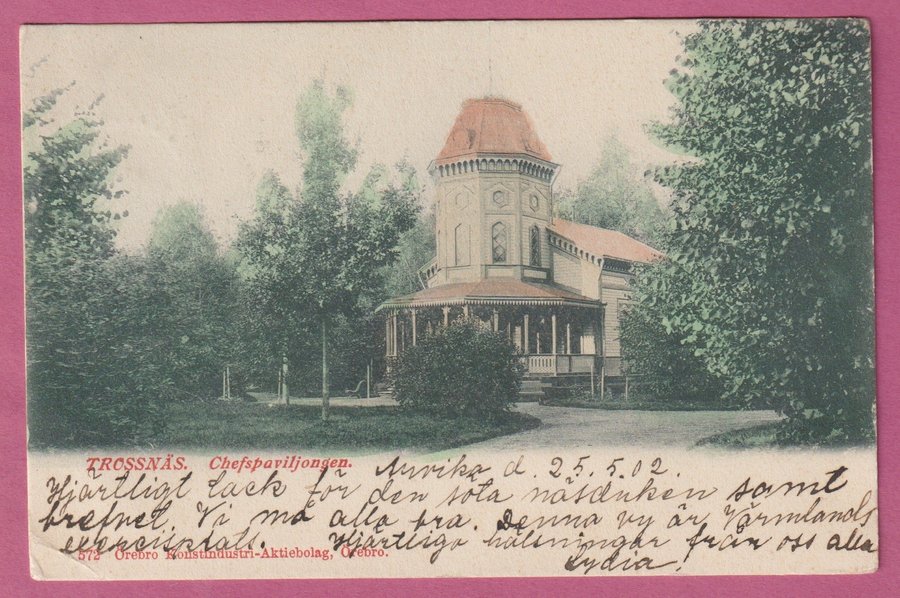 TROSSNÄS. Chefspaviljongen. Arvika d. 25.5.02.
Hjärtligt tack för den söta näsduken samt
brefvet. Vi må alla bra. Denna vy är Värmlands
exercisplats. Hjärtliga hälsningar från oss alla
572 Örebro Konstindustri-Aktiebolag, Örebro.
Lydia.